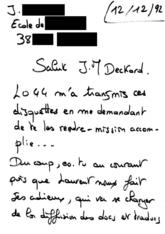 J.
(12/12/92)
Ecole de
38
Salut J.M Deckard.
LO44 m'a transmis ces
disquettes en me demandant
de te les rendre - mission accom-
plie...
Du coup, es-tu au courant
puis que Laurent nous fait
ses adieux, qui va se charger
de la diffusion des docs et traduc